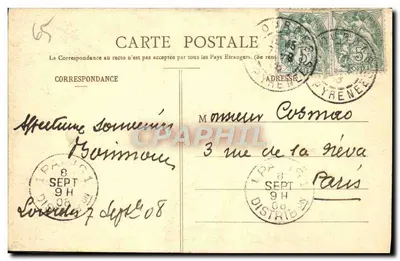 65
CARTE POSTALE
La Correspondance au recto n'est pas acceptée par tous les Pays Étrangers.
CORRESPONDANCE
ADRESSE
Monsieur Cosmao
3 rue de la Néva
Paris
Affectueux souvenirs
Lourdes 7 Septbre 08
PARIS
8
SEPT
9 H
08
DISTRIB
PARIS
8
SEPT
9 H
08
DISTRIB
PYRENEES
PYRENEES
5
5
CPHPHIL